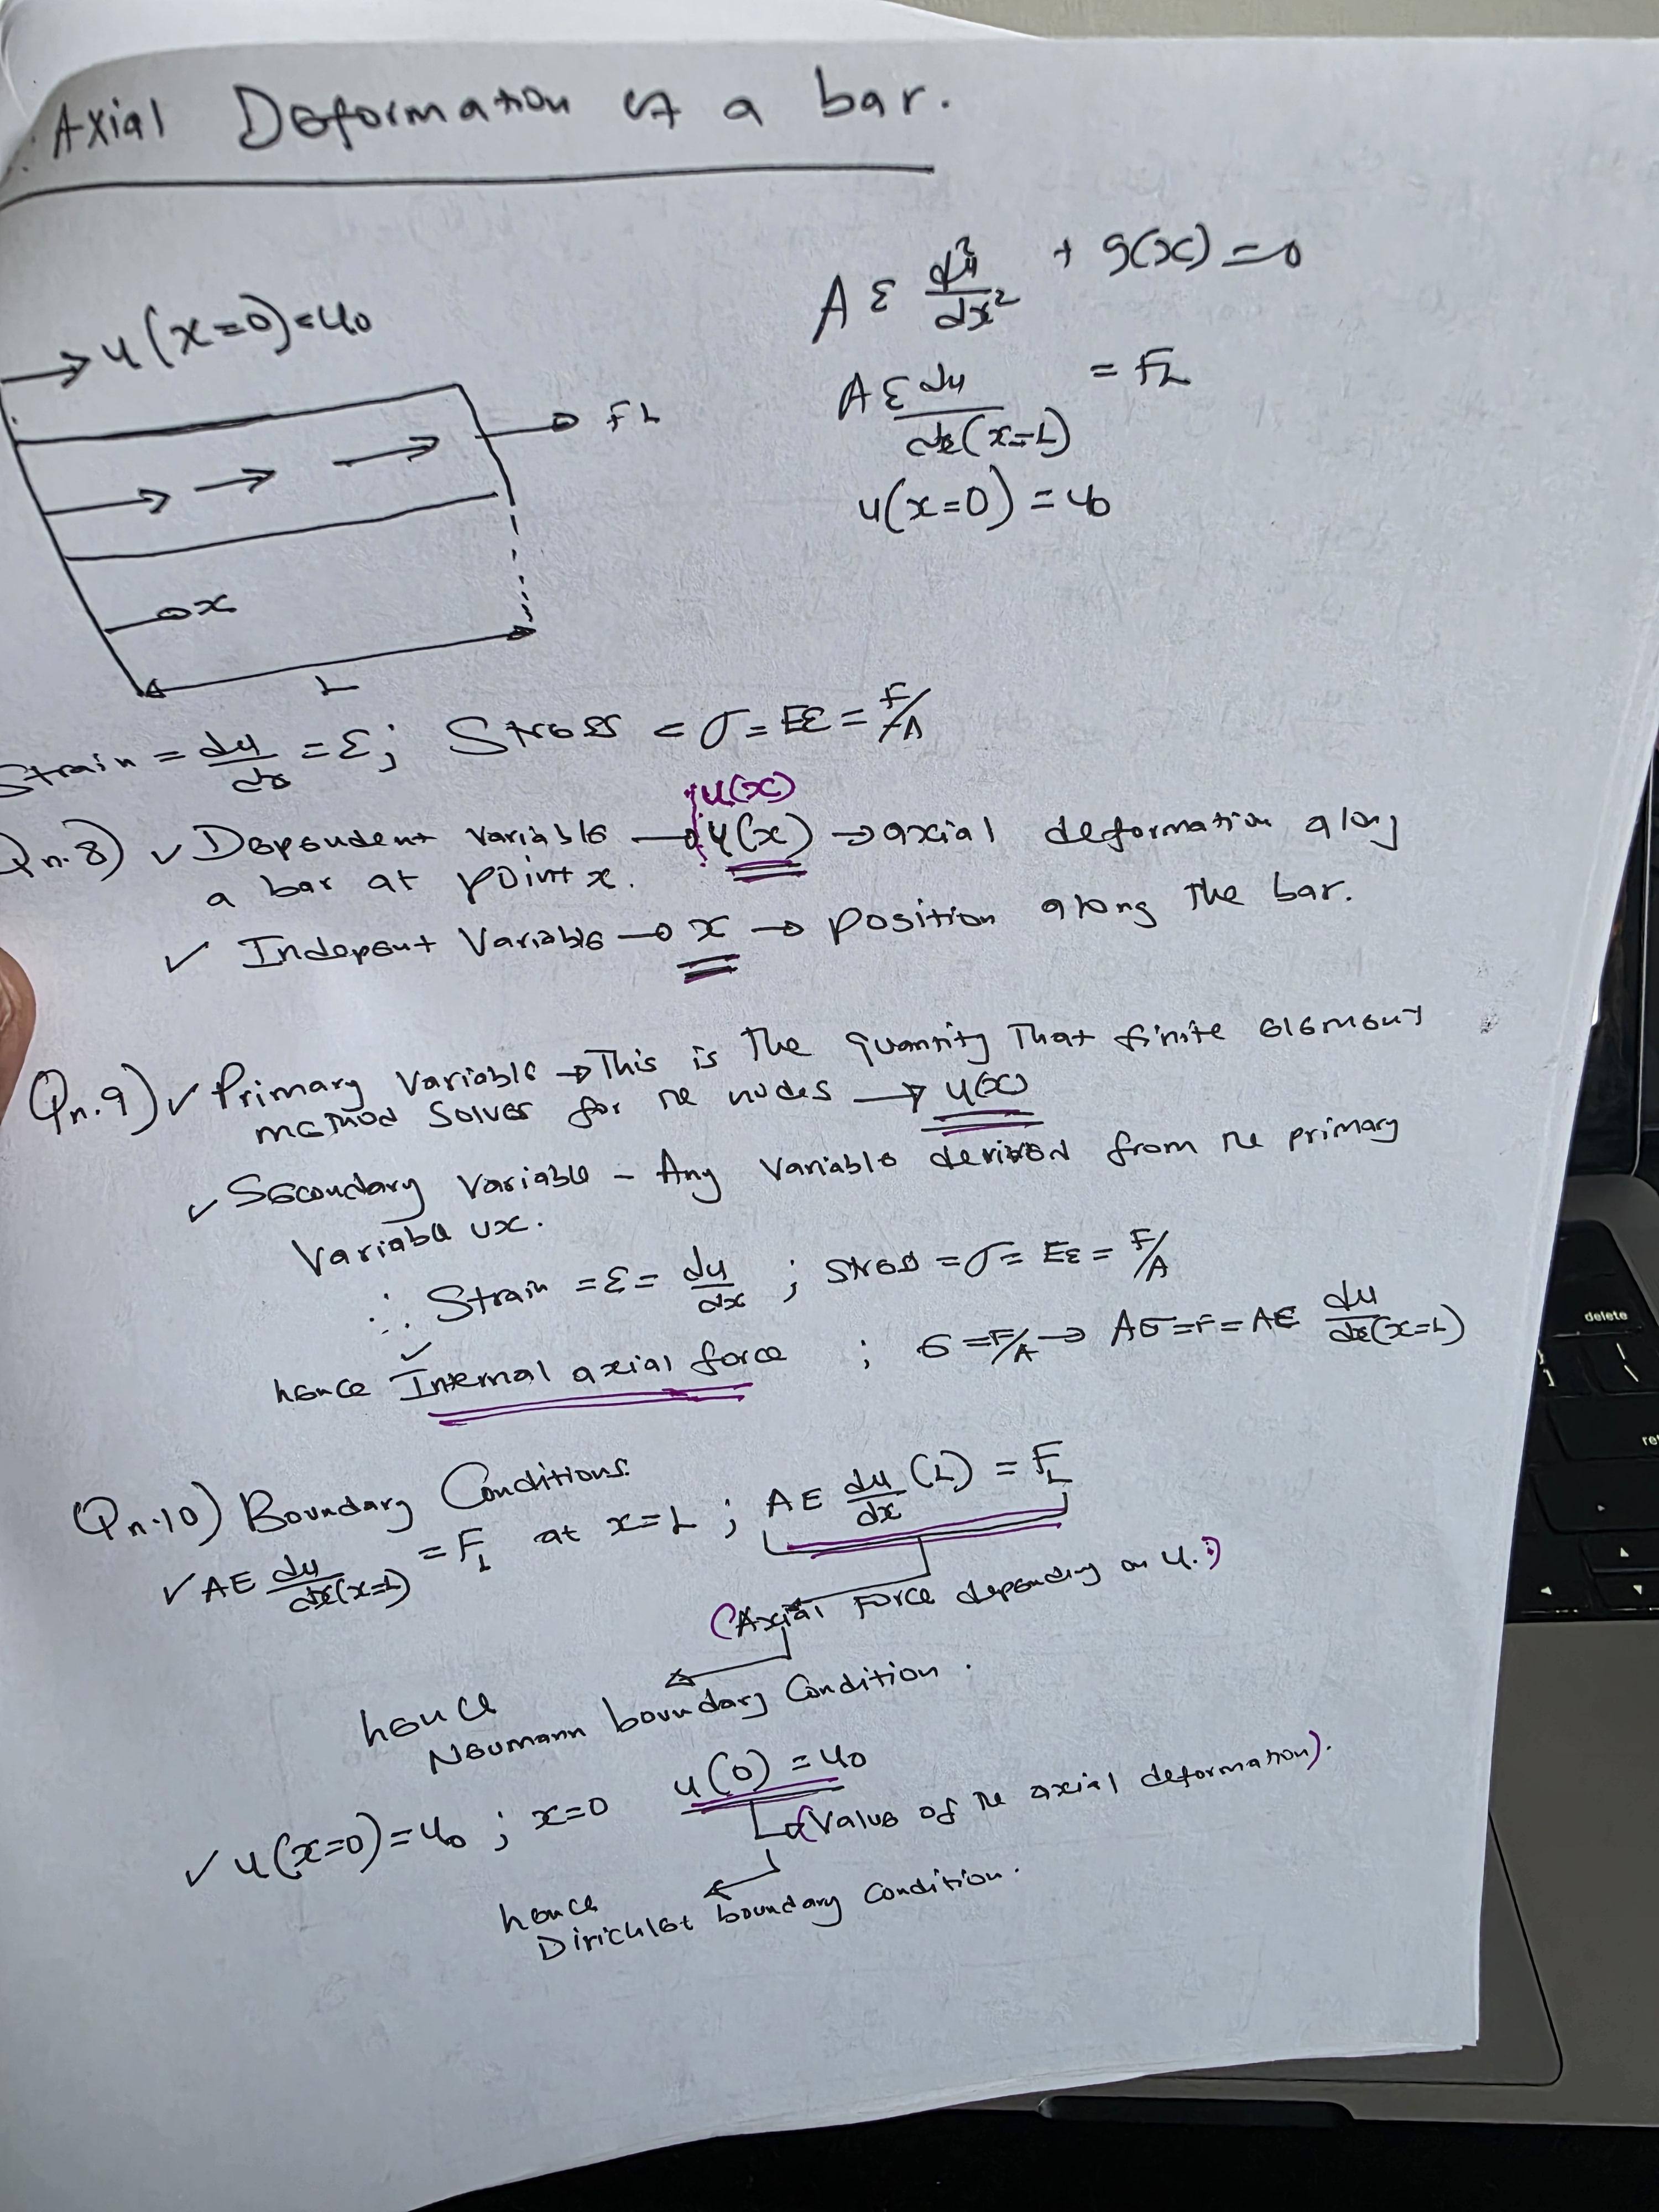 Axial Deformation of a bar.
u(x=0)=u0
AE d²u/dx² + g(x)=0
AE du/dx(x=L) = FL
u(x=0) = u0
FL
x
L
Strain = du/dx = ε; Stress = σ = Eε = F/A
u(x)
Qn.8) ✓ Dependent variable → u(x) → axial deformation along
a bar at point x.
✓ Indepent Variable → x → position along the bar.
Qn.9) ✓ Primary variable → This is the quantity that finite element
method solves for the nodes → u(x)
✓ Secondary variable - Any variable derived from the primary
variable ux.
∴ Strain = ε = du/dx ; stress = σ = Eε = F/A
✓
hence Internal axial force ; σ = F/A → Aσ = F = AE du/dx(x=L)
Qn.10) Boundary Conditions.
✓ AE du/dx(x=L) = FL at x=L ; AE du/dx (L) = FL
(Axial Force depending on u.)
hence
Neumann boundary Condition.
✓ u(x=0)=u0 ; x=0 u(0) = u0
(Value of the axial deformation).
hence
Dirichlet boundary Condition.
delete
ret